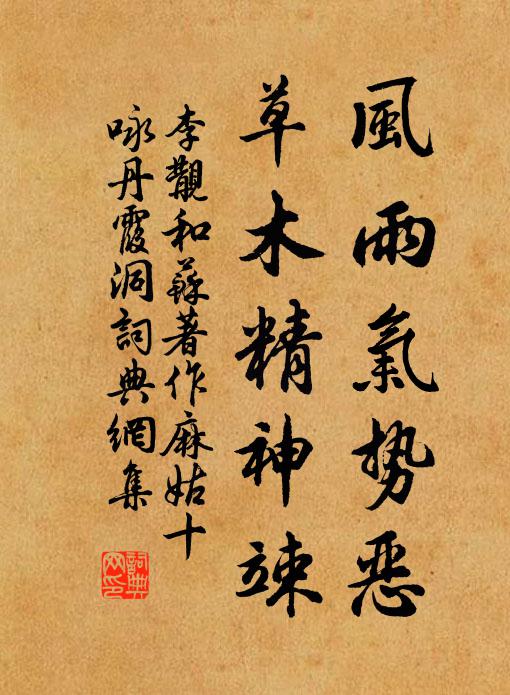 風雨氣势恶
草木精神竦
李觀和蘇著作麻姑十
咏丹霞洞詞典網集
詞典網印